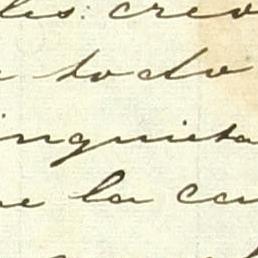 les: creo
todo
inquieta
la ca